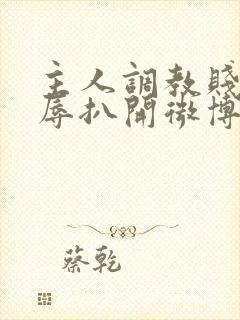 主人調教賤
辱扒開微博
蔡乾